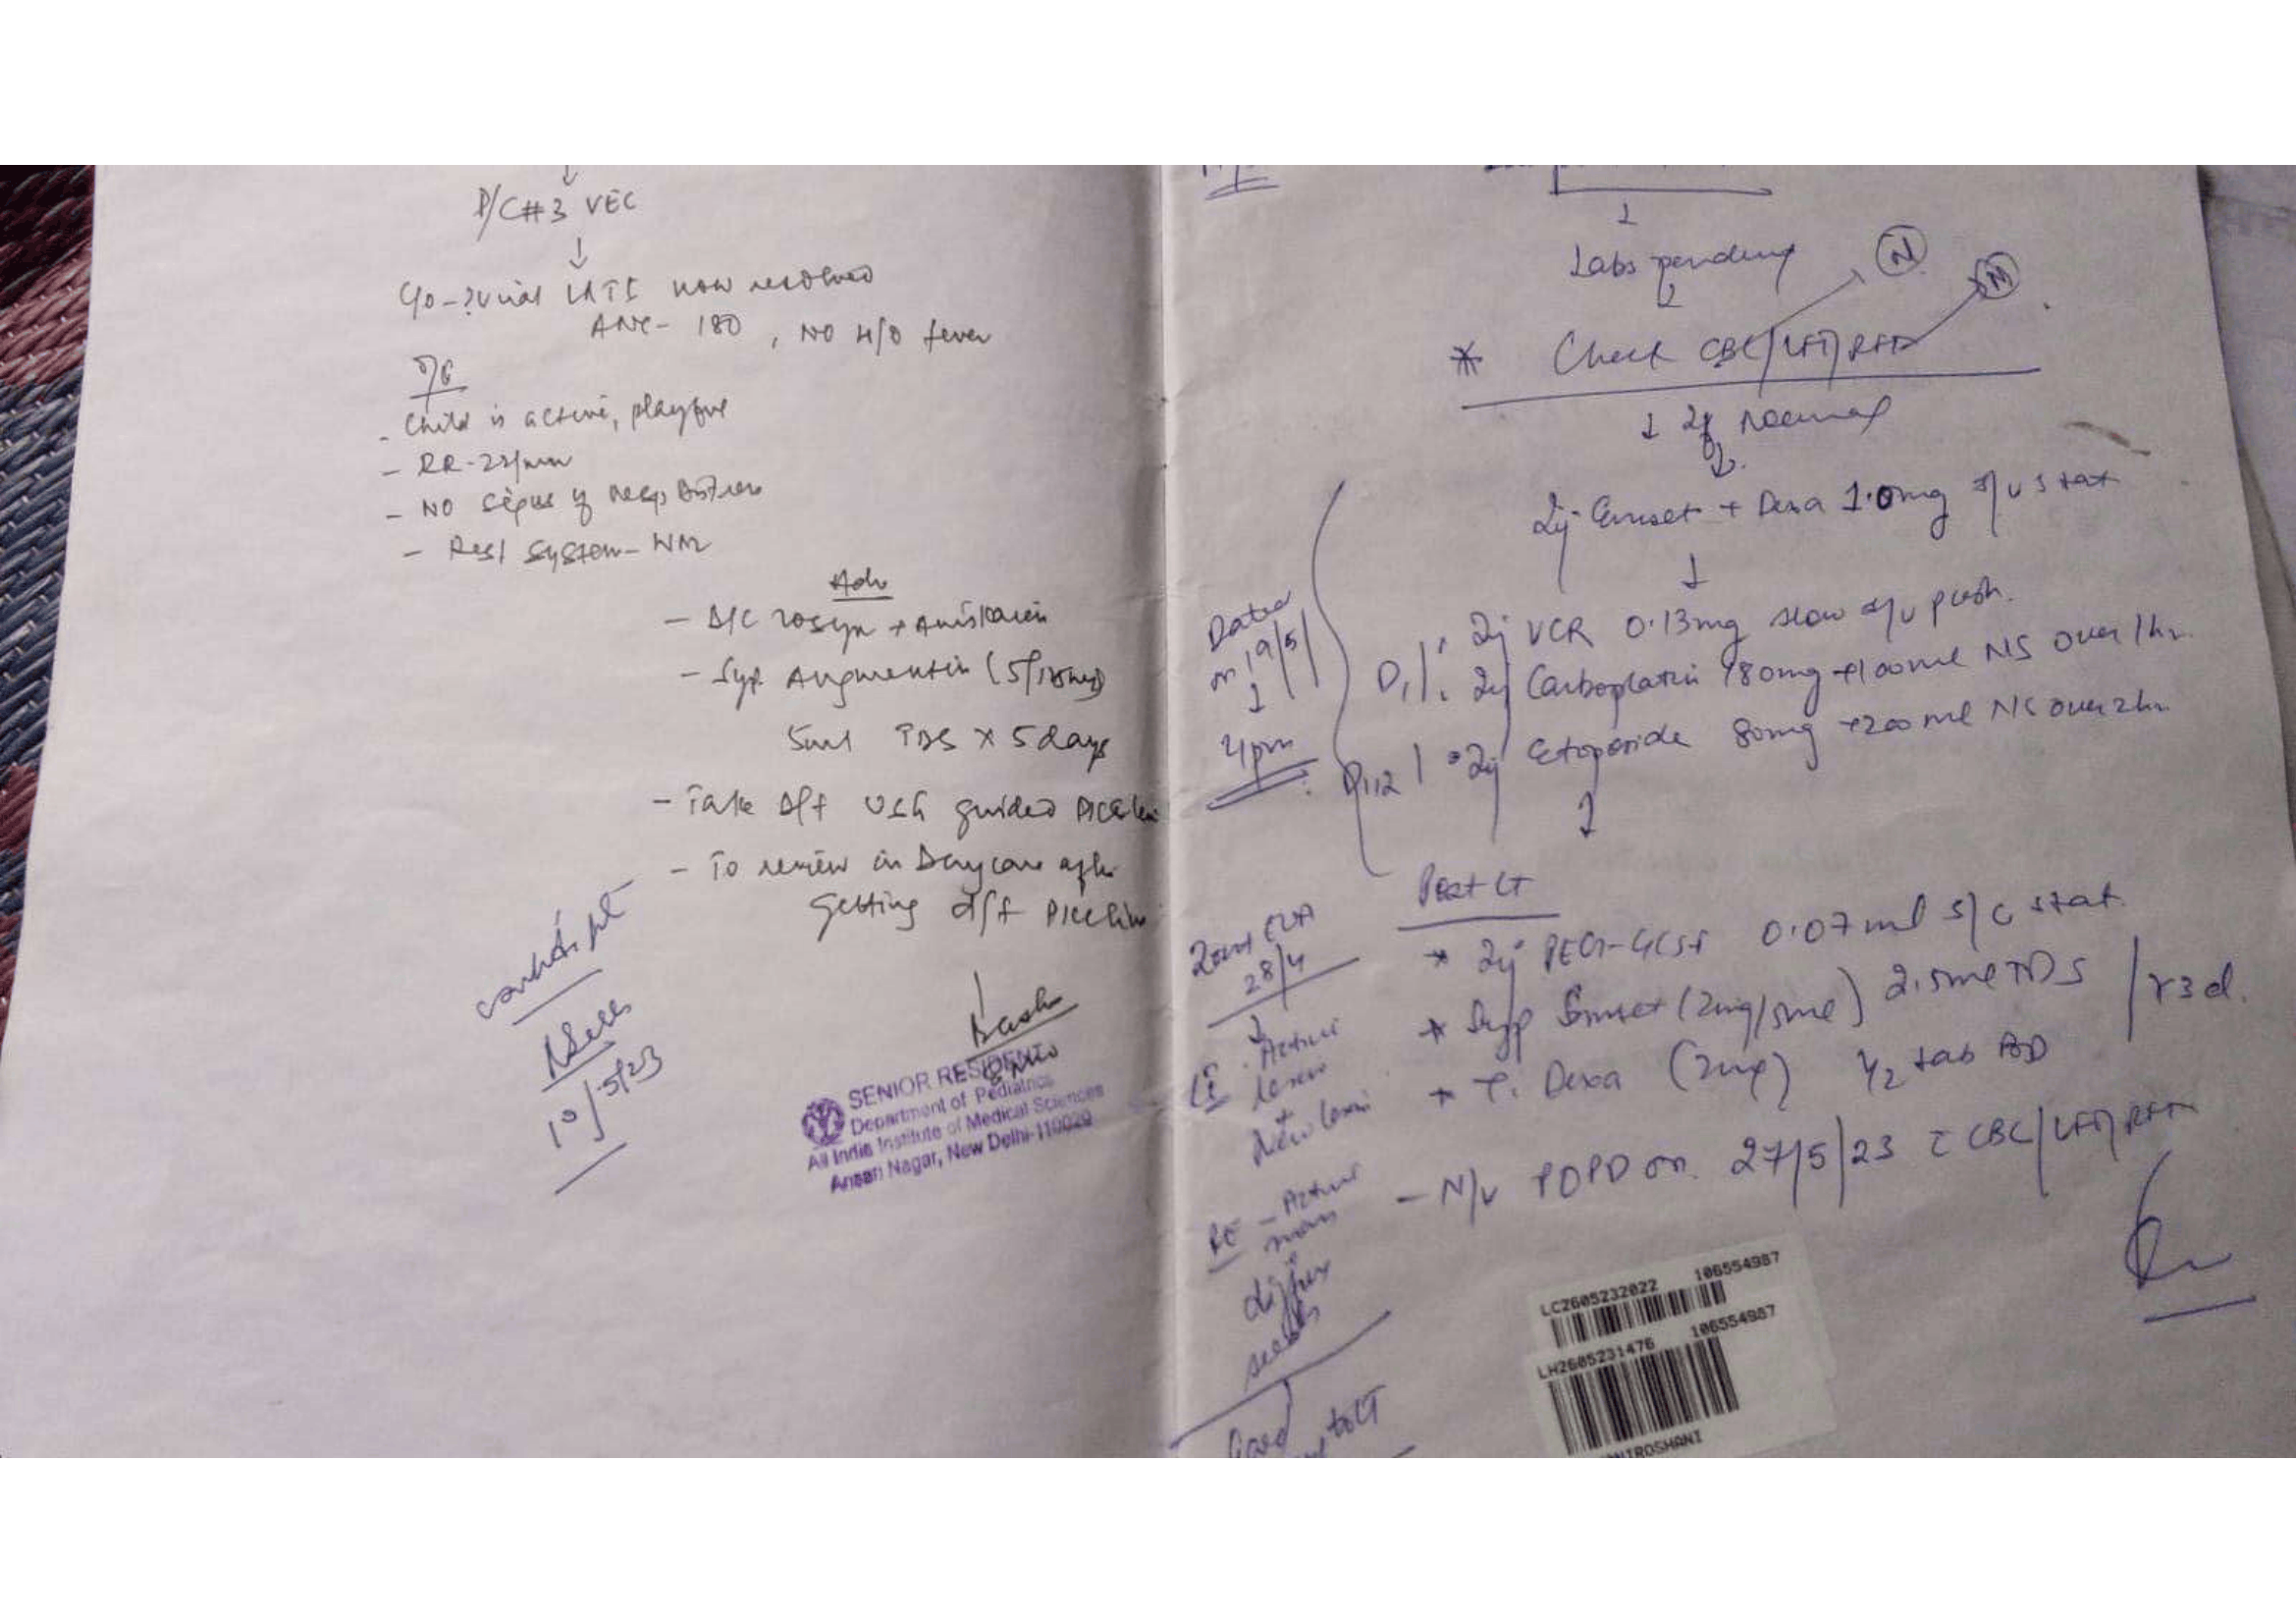 P/C#3 VEC
↓
c/o - ? viral LRTI now resolved
ANC - 180, NO H/O fever
O/E
- Child is active, playful
- RR - 22/min
- NO signs of resp distress
- Rest System - WNL
Adv
- D/C zosyn + Amikacin
- Syp. Augmentin (5/125mg)
5ml TDS x 5 days
- Take d/t USG guided PICC line
- To review in Daycare after
getting d/t PICC line
10/5/23
SENIOR RESIDENT
Department of Pediatrics
All India Institute of Medical Sciences
Ansari Nagar, New Delhi-110029
↓
Labs pending
↓
N
N
* Check CBC/LFT/RFT
↓ If normal
↓
Inj Emset + Dexa 1.0mg I/V stat
↓
Dated
on 19/5/
↓
4pm
D1 Inj VCR 0.13mg slow I/V push.
D1 Inj Carboplatin 180mg + 100ml NS over 1hr.
D1,2 Inj Etoposide 80mg + 200ml NS over 2hr
↓
Post CT
* Inj PEG-GCSF 0.07ml S/C stat.
* Syp Emset (2mg/5ml) 2.5ml TDS / x3d.
* T. Dexa (2mg) 1/2 tab BD
- N/V POPD on 27/5/23 c CBC/LFT/RFT
EUA
28/4
↓
LE - Active
lesion
+
New lesion
RE - Active
seeds
to CT
LC2605232022 106554987
LH2605231476 106554987
ROSHANI